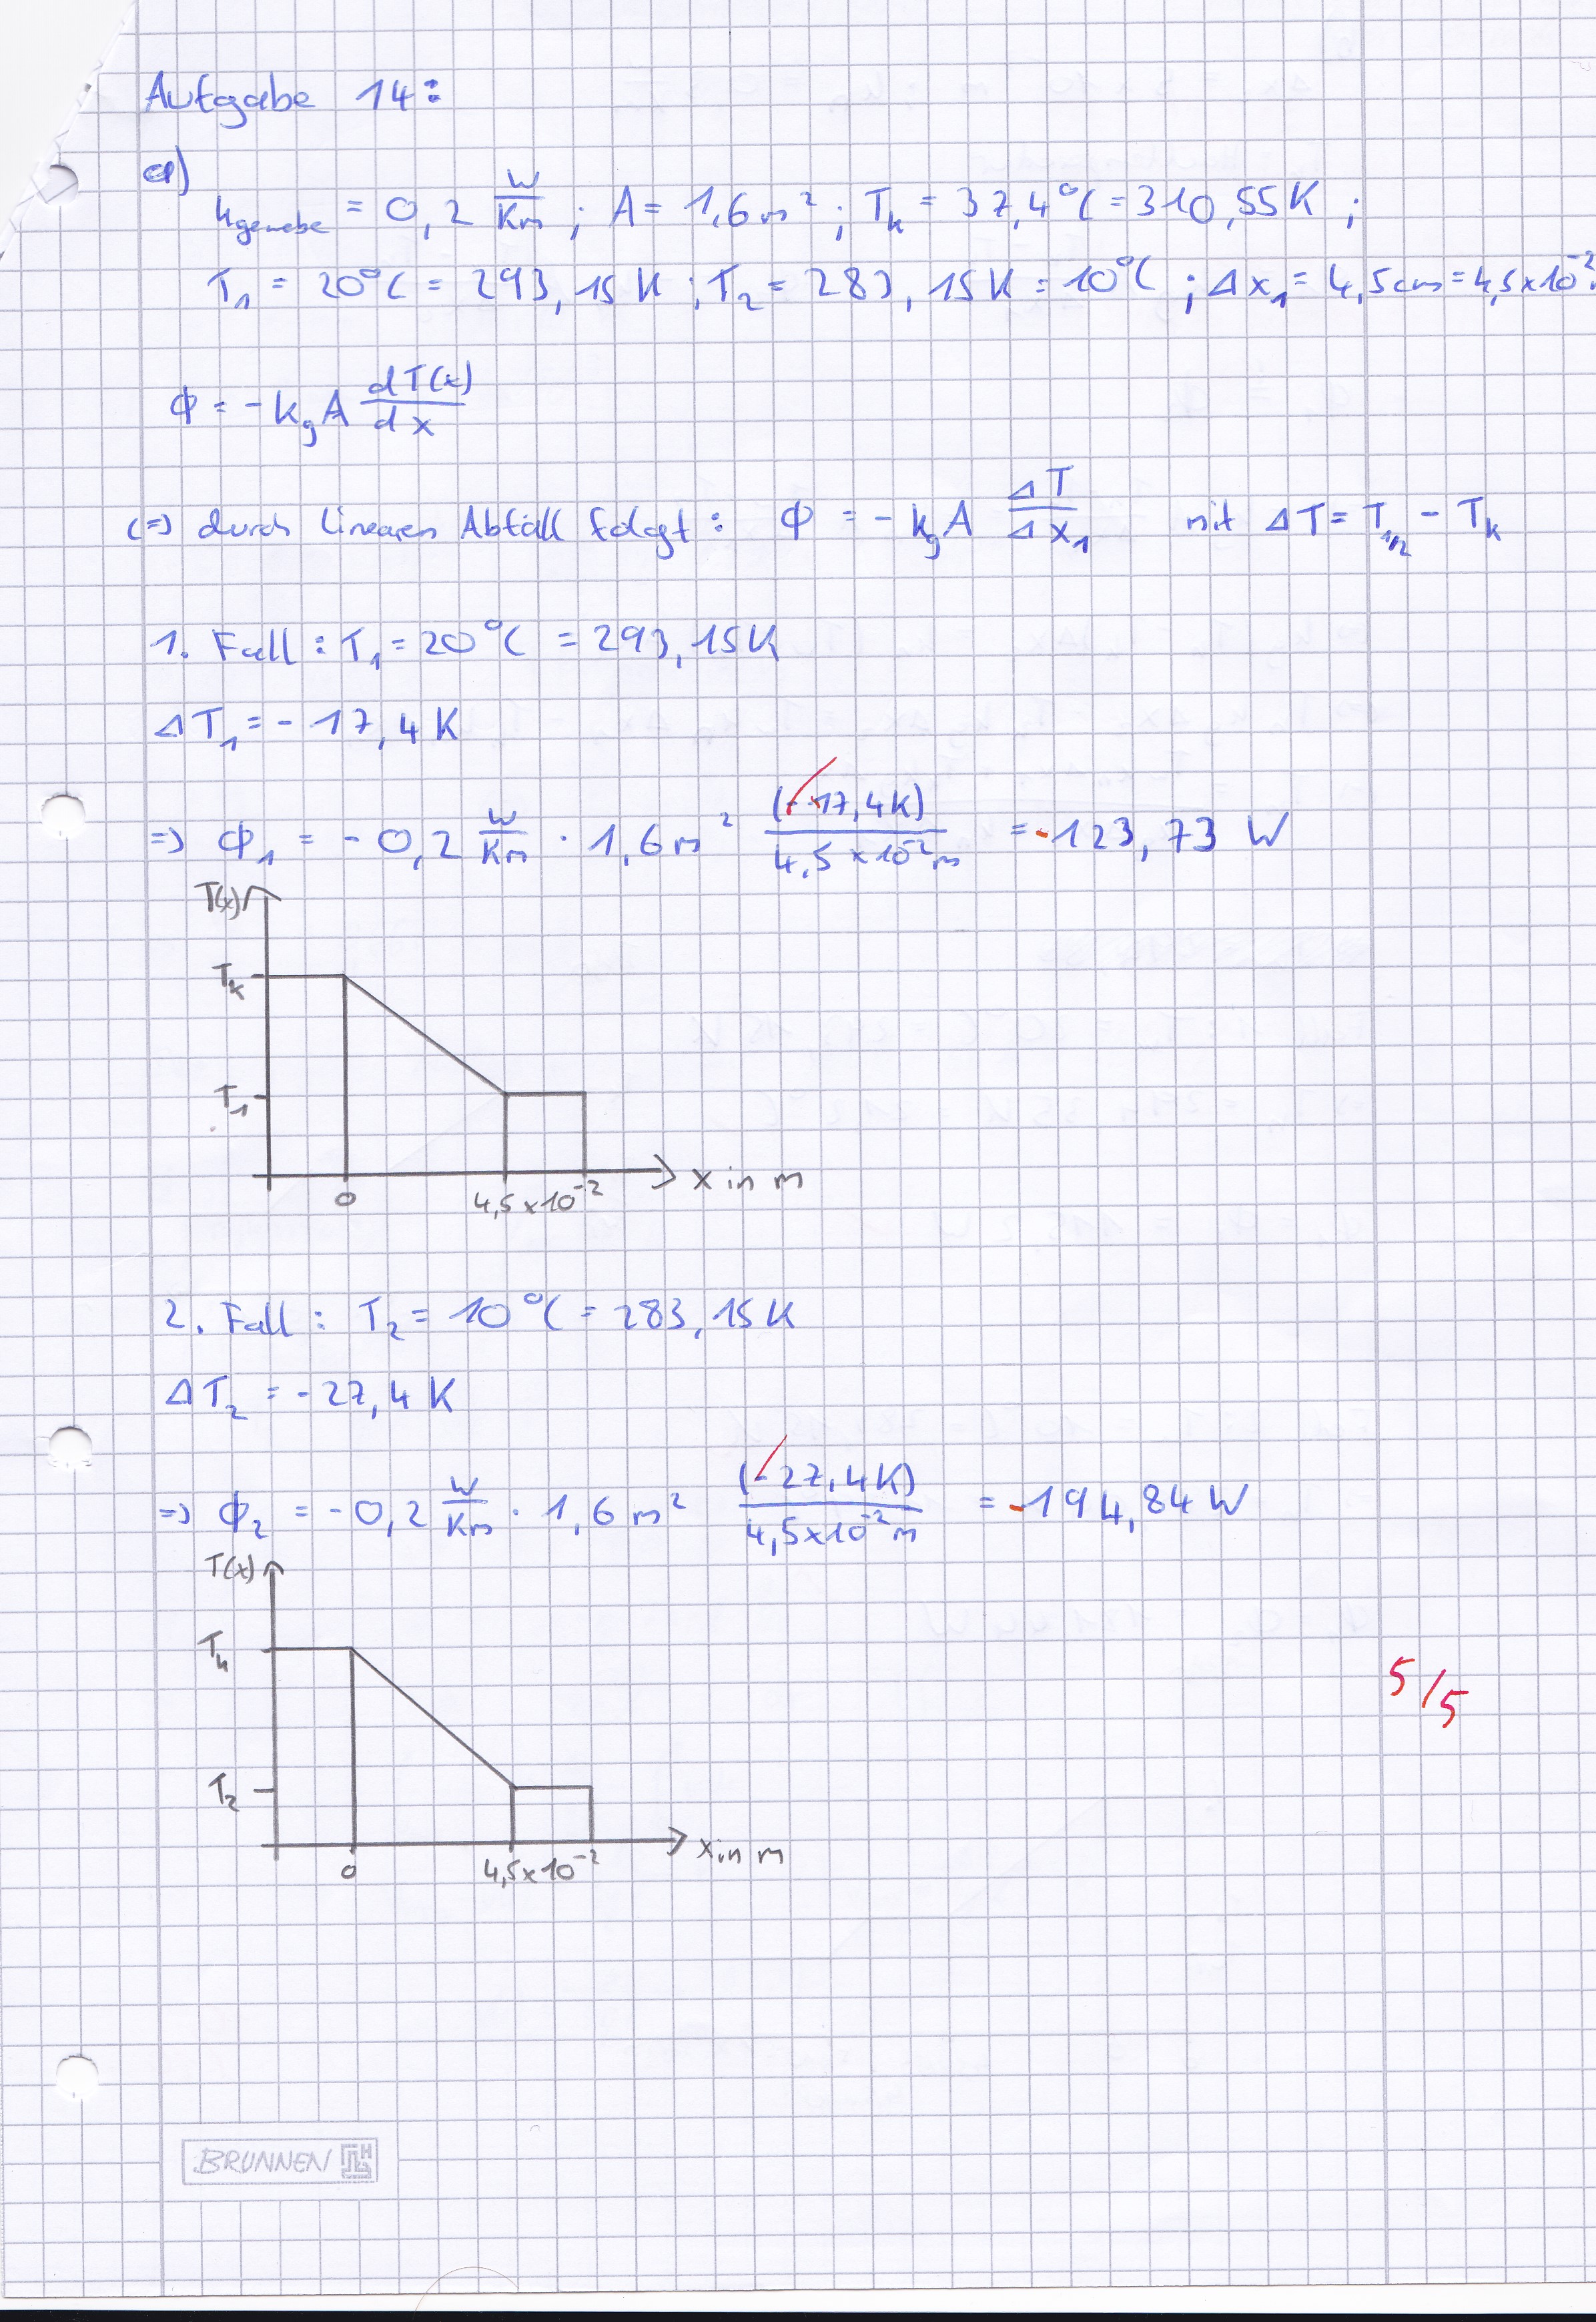 Aufgabe 14:
a)
k_gewebe = 0,2 W/Km ; A = 1,6 m² ; T_k = 37,4°C = 310,55 K ;
T₁ = 20°C = 293,15 K ; T₂ = 283,15 K = 10°C ; Δx₁ = 4,5 cm = 4,5 x 10⁻²
Φ = - k_g A dT(x)/dx
(=) durch linearen Abfall folgt : Φ = - k_g A ΔT/Δx₁ mit ΔT = T_1/2 - T_k
1. Fall : T₁ = 20°C = 293,15 K
ΔT₁ = - 17,4 K
=> Φ₁ = - 0,2 W/Km · 1,6 m² (-17,4 K)/(4,5 x 10⁻² m) = -123,73 W
T(x)
T_k
T₁
0 4,5 x 10⁻² x in m
2. Fall : T₂ = 10°C = 283,15 K
ΔT₂ = - 27,4 K
=> Φ₂ = - 0,2 W/Km · 1,6 m² (-27,4 K)/(4,5 x 10⁻² m) = -194,84 W
T(x)
T_k
5/5
T₂
0 4,5 x 10⁻² x in m
BRUNNEN